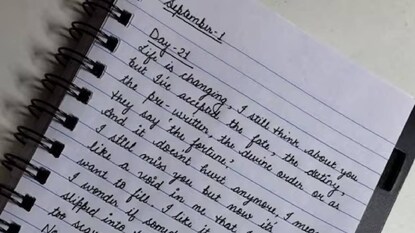 September-1
Day-21
Life is changing, I still think about you
but I've accepted the fate, the destiny
the pre-written, the devine order or as
they say 'the fortune'
And it doesn't hurt anymore, I mean
I still miss you but now it's
like a void in me that I
want to fill. I like it
I wonder if some
slipped into
too